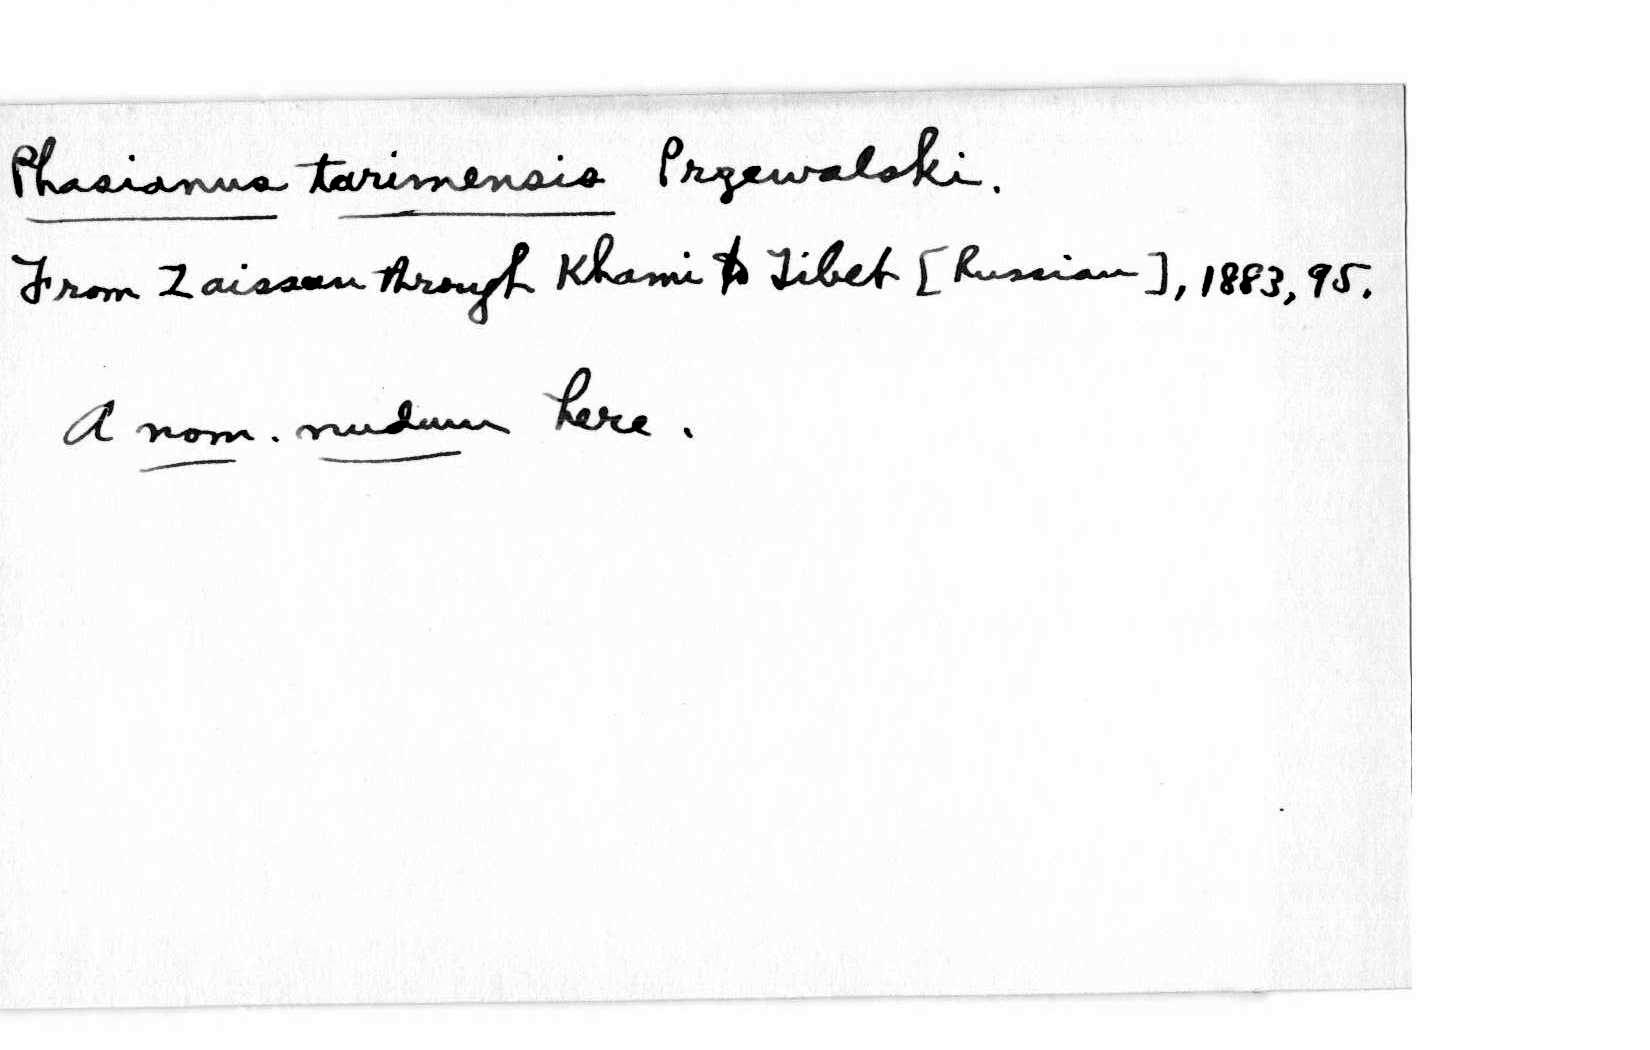 Phasianus tarimensis Przewalski.
From Zaissan through Khami to Tibet [Russian], 1883, 95.
A nom. nudum here.